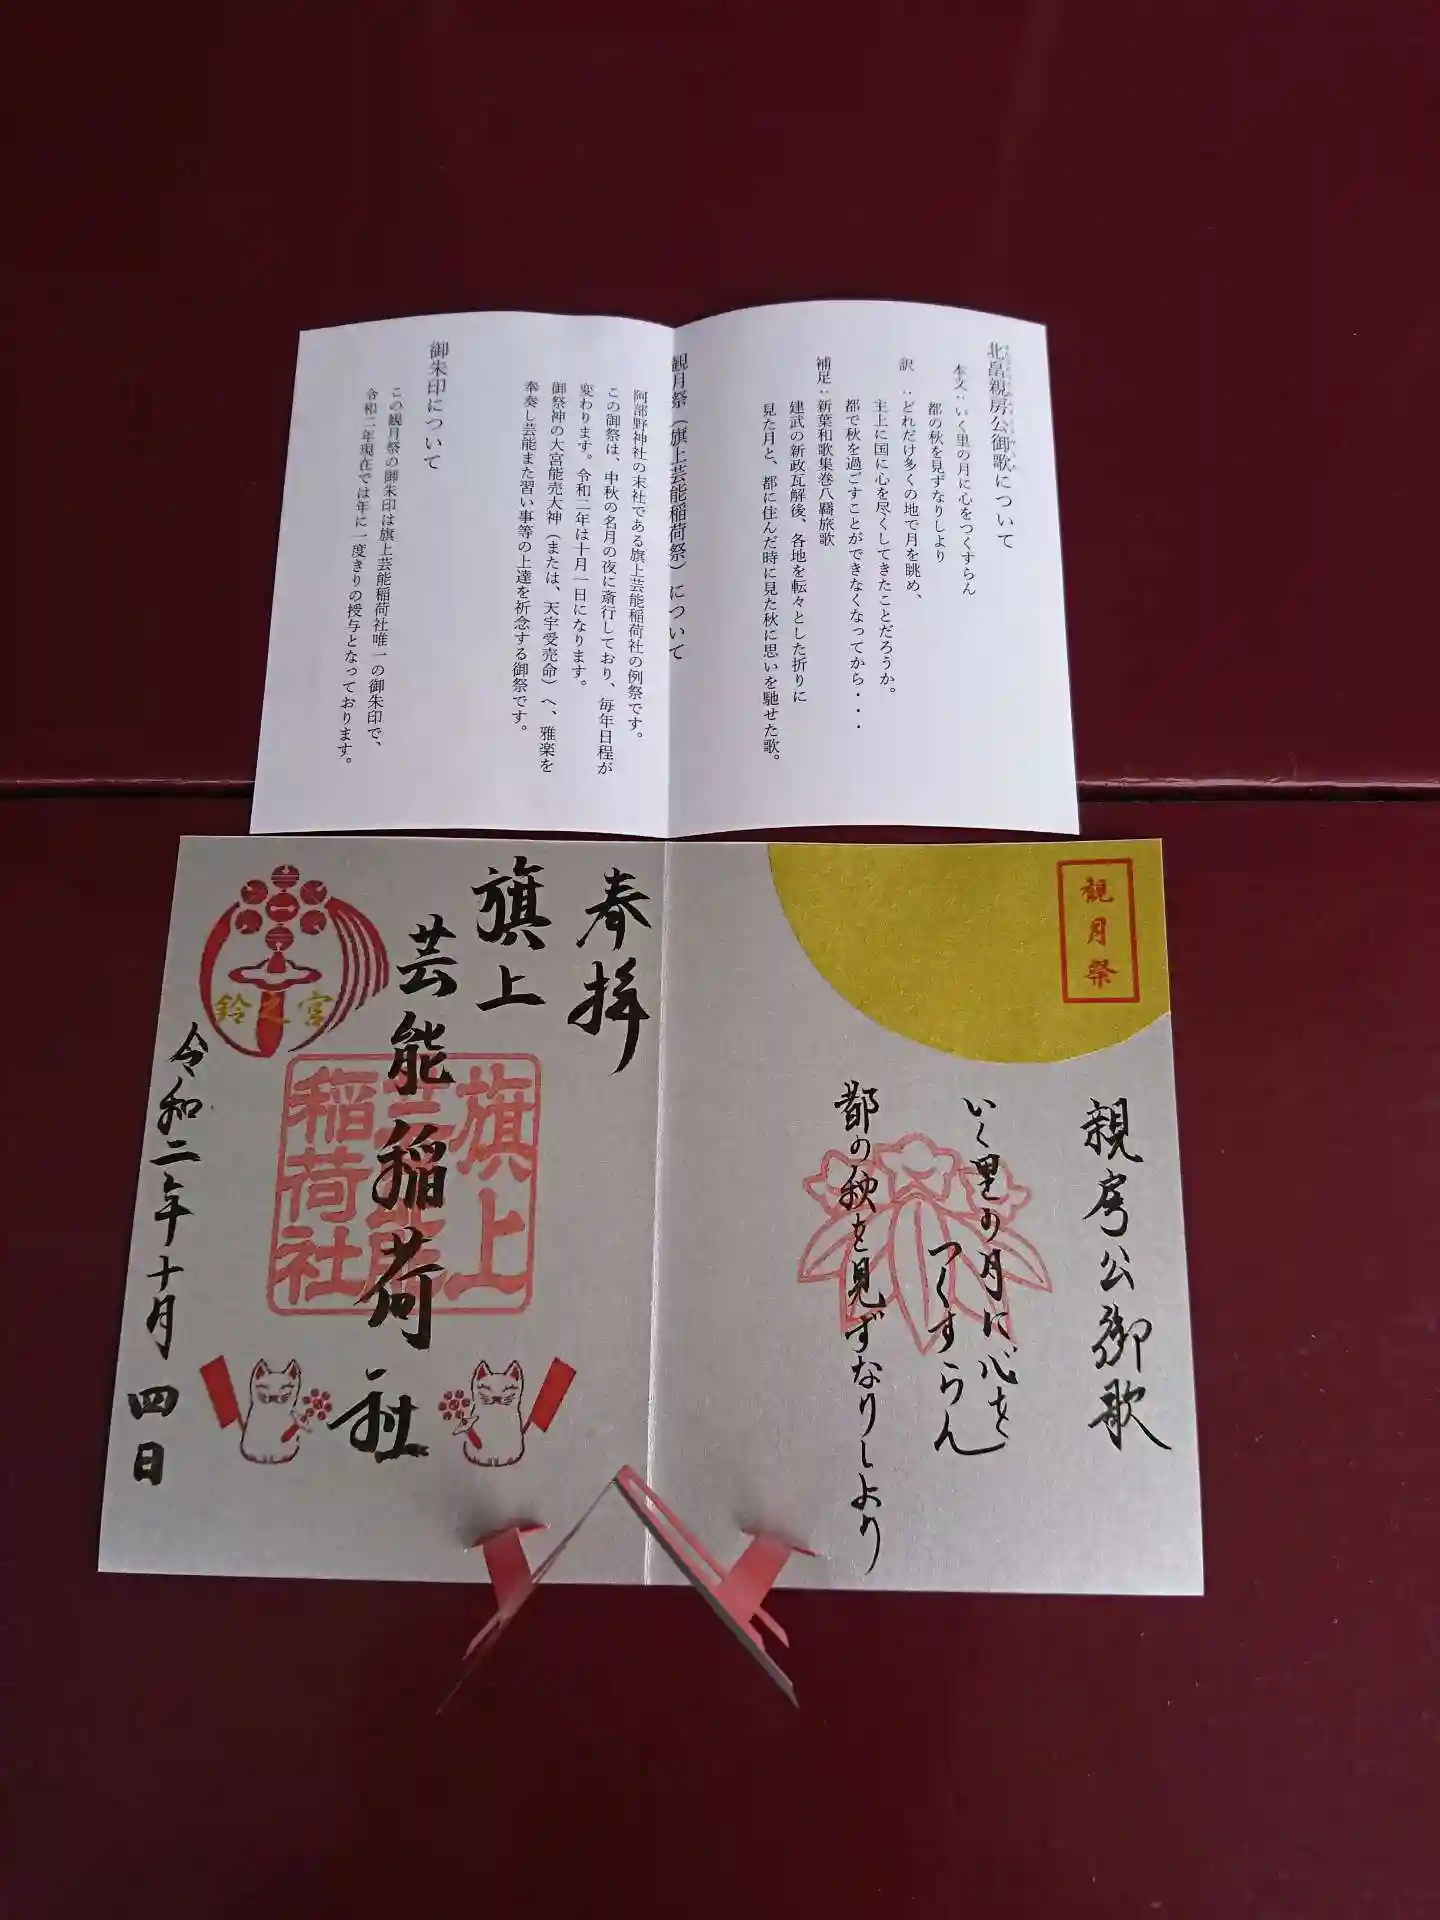 北畠親房公御歌について
本文：いく里の月に心をつくすらん
都の秋を見ずなりしより
訳　：どれだけ多くの地で月を眺め、
主上に国に心を尽くしてきたことだろうか。
都で秋を過ごすことができなくなってから・・・
補足：新葉和歌集巻八羇旅歌
建武の新政瓦解後、各地を転々とした折りに
見た月と、都に住んだ時に見た秋に思いを馳せた歌。
観月祭（旗上芸能稲荷祭）について
阿部野神社の末社である旗上芸能稲荷社の例祭です。
この御祭は、中秋の名月の夜に斎行しており、毎年日程が
変わります。令和二年は十月一日になります。
御祭神の大宮能売大神（または、天宇受売命）へ、雅楽を
奉奏し芸能また習い事等の上達を祈念する御祭です。
御朱印について
この観月祭の御朱印は旗上芸能稲荷社唯一の御朱印で、
令和二年現在では年に一度きりの授与となっております。
観月祭
親房公御歌
いく里の月に心を
つくすらん
都の秋を見ずなりしより
奉拝
旗上
芸能稲荷社
旗上
芸能
稲荷社
鈴之宮
令和二年十月四日